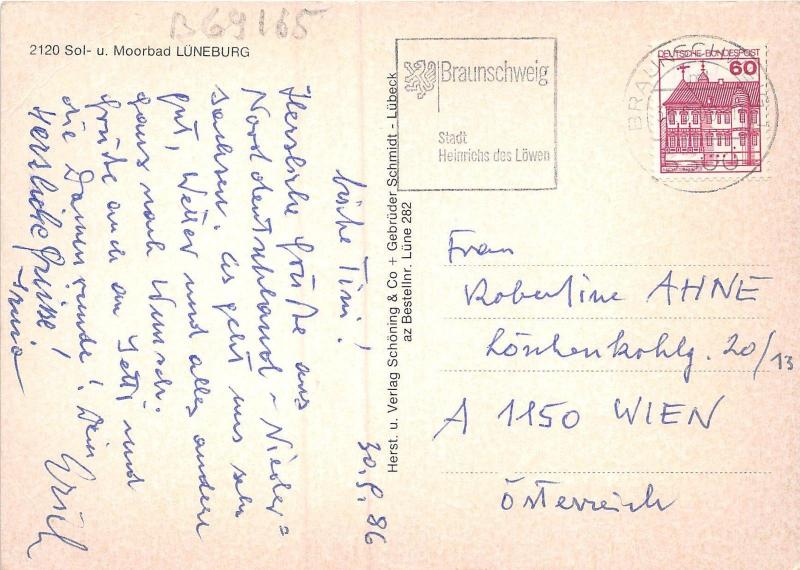 B69165
2120 Sol- u. Moorbad LÜNEBURG
30.9.86
Liebe Tini!
Herzliche Grüße aus
Norddeutschland - Nieder=
sachsen. Es geht uns sehr
gut, Wetter und alles andere
ganz nach Wunsch.
Grüße auch an Jetti und
die Damenrunde! Dein
Erich
Herzliche Grüsse!
Irma
Herst. u. Verlag Schöning & Co + Gebrüder Schmidt - Lübeck
az Bestellnr. Lüne 282
Braunschweig
Stadt
Heinrichs des Löwen
BRAUNSCHW
DEUTSCHE BUNDESPOST
60
Frau
Robertine AHNE
Löschenkohlg. 20/13
A 1150 WIEN
Österreich